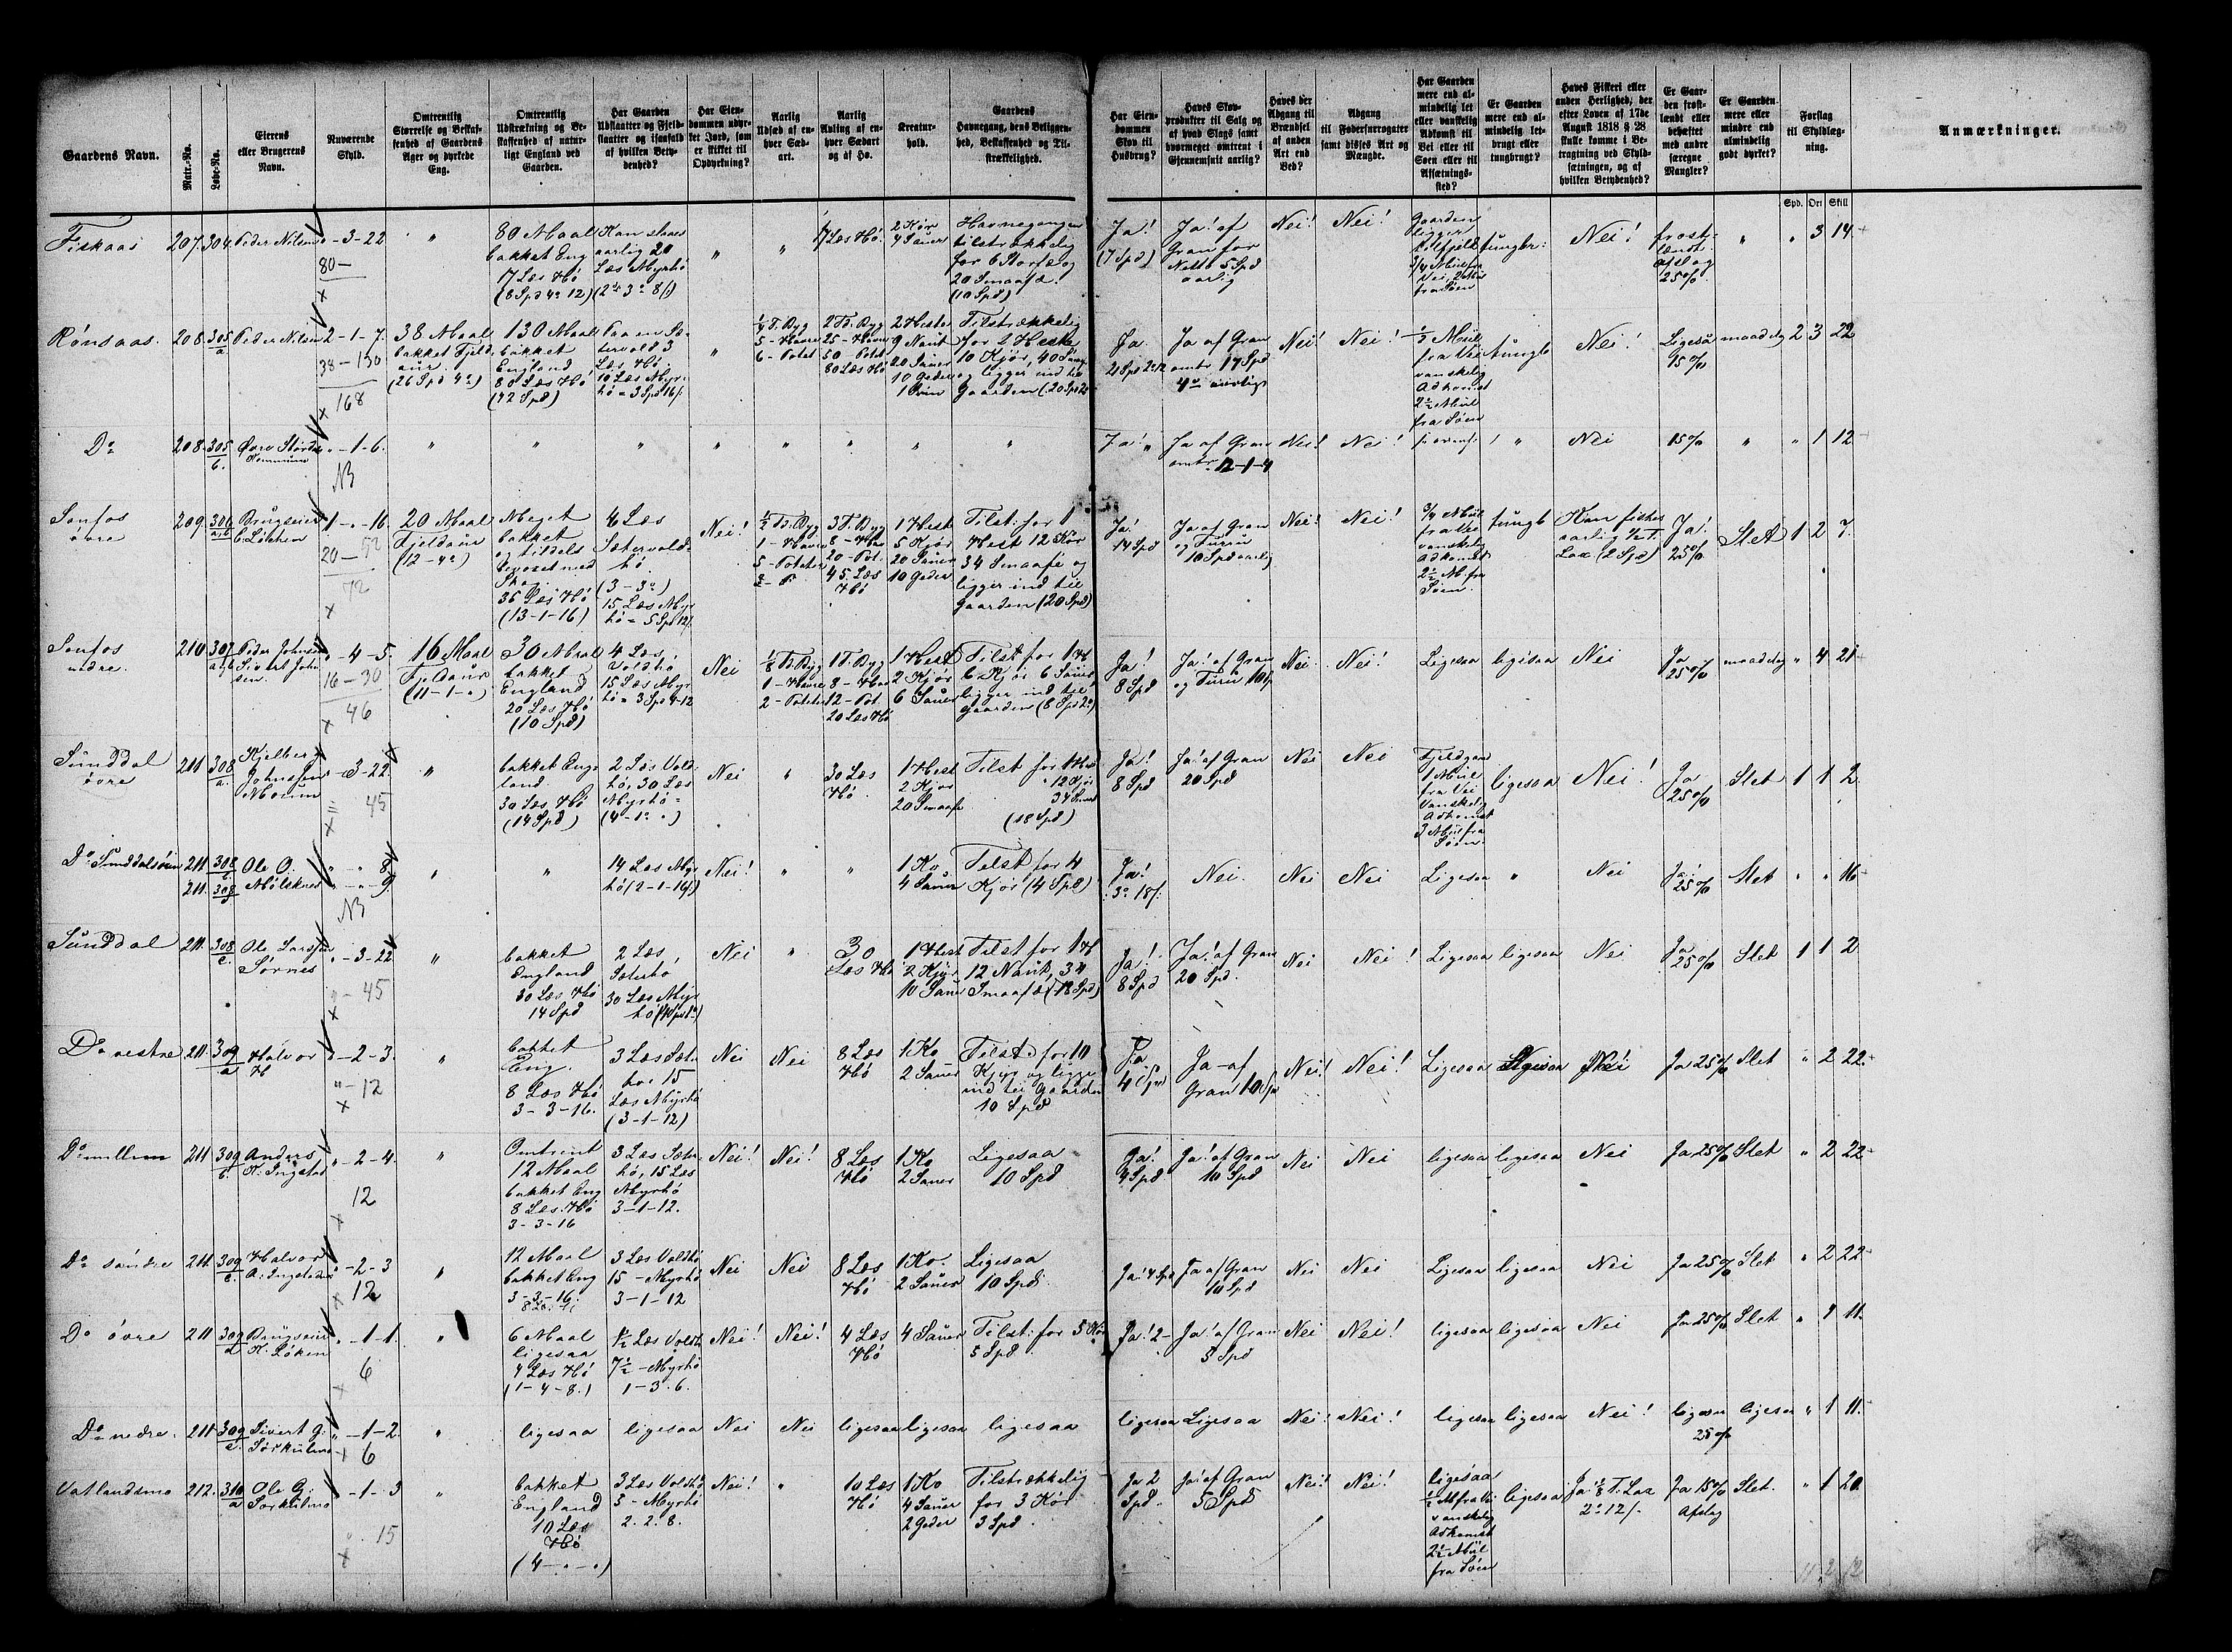 Gaardens Navn.
Matr.-No.
Løbe-No.
Eierens
eller Brugerens
Navn.
Nuværende
Skyld.
Omtrentlig
Størrelse og Beskaf-
fenhed af Gaardens
Ager og dyrkede
Eng.
Omtrentlig
Udstrækning og Be-
skaffenhed af natur-
ligt England ved
Gaarden.
Har Gaarden
Udslaatter og Fjeld-
slaatter og isaafald
af hvilken Bety-
denhed?
Har Eien-
dommen udyr-
ket Jord, som
er skikket til
Opdyrkning?
Aarlig
Udsæd af en-
hver Sæd-
art.
Aarlig
Avling af en-
hver Sædart
og af Hø.
Kreatur-
hold.
Gaardens
Havnegang, dens Beliggen-
hed, Beskaffenhed og Til-
strækkelighed.
Har Eien-
dommen
Skov til
Husbrug?
Haves Skov-
produkter til Salg og
af hvad Slags samt
hvormeget omtrent i
Gjennemsnit aarlig?
Haves der
Adgang til
Brændsel
af anden
Art end
Ved?
Adgang
til Fodersurrogater
samt disses Art og
Mængde.
Har Gaarden
mere end al-
mindelig let
eller vanskelig
Adkomst til
Vei eller til
Søen eller til
Afsætnings-
sted?
Er Gaarden
mere end al-
mindelig let-
brugt eller
tungbrugt?
Haves Fiskeri eller
anden Herlighed, der
efter Loven af 17de
August 1818 § 28
skulle komme i Be-
tragtning ved Skyld-
sætningen, og af
hvilken Betydenhed?
Er Gaar-
den frost-
lændt eller
behæftet
med andre
særegne
Mangler?
Er Gaarden
mere eller
mindre end
almindelig
godt dyrket?
Forslag
til Skyldlæg-
ning.
Anmærkninger.
Spd. Ort Skill
Fiskaas 207. 304. Peder Nilsen " - 3 - 22
80 -
"
80 Maal
bakket Eng
17 Læs Hø
(8 Spd 4 o 12)
Kan slaaes
aarlig 20
Læs Myrhø
" " 17 Læs Hø.
2 Kør
4 Sauer
Havnegangen
tilstrækkelig
for 6 Storfæ og
20 Smaafæ.
(10 Spd)
Ja!
(7 Spd)
Ja! af
Gran for
Netto 5 Spd
aarlig
Nei! Nei!
Gaarden
ligger
til fjelds
3/4 Miil fra
Vei, 2 Miil
fra Søen
tungbr: Nei!
frost-
lændt
afslag
25%.
" " 3 14
Rønsaas. 208. 305 a Peder Nilsen 2 - 1 - 7.
38 - 130
168
38 Maal
bakket Fjeld
aur.
(26 Spd 4 o)
130 Maal
bakket
England
80 Læs Hø
(42 Spd)
Paa en Sæ-
tervold 3
Læs Hø.
10 Læs Myr-
hø = 3 Spd 16/.
"
1/4 T. Byg
5 - Havre
6 - Potet
2 T. Byg
25 - Havre
50 - Potet
80 Læs Hø
2 Heste
9 Naut
20 Sauer
10 Geder
1 Sviin
Tilstrækkelig
for 2 Heste
10 Kjør, 40 Smaaf
og ligger ind til
Gaarden
Ja
Ja af Gran
omtr 17 Spd
4 o aarlig
Nei! Nei!
1/2 Miil
fra Vei
vanskelig
Adkomst
2 1/2 Miil
fra Søen
tungb Nei!
Ligesaa
15%
maadelig 2 3 22
Do 208. 305 b. Øvre Stjørdal
Kommune
" - 1 - 6.
NB
" " " " " " " "
Ja! Ja af Gran
omtr 12 - 1 - 4
Nei! Nei! " Nei 15% " " 1 12
Sonfos
øvre
209. 306 a,b Brugseier
Løkken
1 - " - 16.
20 - 52
72
20 Maal
Fjeldaur
(12 - 4 o)
Meget
bakket
og tildels
bevoxet med
Skog.
35 Læs Hø
(13 - 1 - 16)
6 Læs
Sætervold-
hø
(3 - 3 o)
15 Læs Myr
hø = 5 Spd 12/.
Nei!
1/2 T. Byg
1 - Havre
5 - Poteter
3 T. Byg
8 - Hav
20 - Pot.
45. Læs
Hø
1 Hest
5 Kjør
20 Sauer
10 Geder
Tilst: for 1
Hest 12 Kør
34 Smaafæ og
ligger ind til
Gaarden (20 Spd)
Ja!
14 Spd
Ja af Gran
og Furu
10 Spd aarlig
Nei! Nei!
3/4 Miil
fra Vei
vanskelig
Adkomst
2 1/2 M. fra
Søen.
tungb
Kan fiskes
aarlig 1/2 T.
Lax (2 Spd)
Ja!
25%
Slet 1 2 7.
Sonfos
nedre.
210 307 a,b Peder Johnsen
Sivert John
sen.
" - 4 - 5.
16 - 30
46
16 Maal
Fj. Aaur
(11 - 1 - ")
30 Maal
bakket
England
20 Læs Hø
(10 Spd)
4 Læs
Voldhø
15 Læs Myr
hø = 3 Spd 4 - 12
Nei
1/8 T. Byg
1 - Havre
2 - Poteter
1 T. Byg
8 - Hav
12 - Pot.
20 Læs Hø
1 Hest
2 Kjør
6 Sauer
Tilst for 1 H
6 Kjør 6 Sauer
ligger ind til
gaarden (8 Spd 2 o)
Ja!
8 Spd
Ja! af Gran
og Furu
Nei. Nei! Ligesaa ligesaa Nei
Ja
25%
maadelig " 4 21
Sunddal
øvre
211 308 a. Kjelberg
Johnsen
Moum
" - 3 - 22
45
"
bakket Eng-
land.
30 Læs Hø
(14 Spd)
2 Læs Vold-
hø, 30 Læs
Myrhø =
(4 - 1 o ")
Nei "
30 Læs
Hø
1 Hest
2 Kjør
20 Smaafæ
Tilst for 1 Hest
" 12 Kjør
34 Smaa
(18 Spd)
Ja!
8 Spd
Ja! af Gran
20 Spd
Nei Nei
Fjeldgaard
1 Miil
fra Vei
Vanskelig
Adkomst
3 Miil fra
Søen.
ligesaa Nei!
Ja
25%
Slet 1 1 2
Do Sunddalsøien 211 308
211. 308
Ole O.
Mølsknes
" - " - 8.
" - " - 9
NB
" "
14 Læs Myr
hø (2 - 1 - 16/.)
Nei! " "
1 Ko
4 Sauer
Tilst for 4
Kjør (4 Spd)
Ja!
3 o 18/.
Nei. Nei Nei Ligesaa " Nei
Ja!
25%
Slet " " 16
Sunddal 211. 308 c. Ole Larssen
Sørnes
" - 3 - 22
" - 45
"
bakket
England
30 Læs Hø
14 Spd
2 Læs
Sæterhø
30 Læs Myr
hø
Nei "
30
Læs Hø
1 Hest
2 Kjør
10 Sauer
Tilst for 1 H
12 Naut, 34
Smaafæ (18 Spd)
Ja!
8 Spd
Ja! af Gran
20 Spd.
Nei Nei! Ligesaa ligesaa Nei
Ja
25%
Slet 1 1 2
Do vestre 211. 309 a Halvor
H
" - 2 - 3.
" - 12
"
bakket
Eng.
8 Læs Hø
3 - 3 - 16.
3 Læs Sæt.
hø. 15
Læs Myrhø
(3 - 1 - 12)
Nei Nei
8 Læs
Hø
1 Ko
2 Sauer
Tilst. for 10
Kjør og ligger
ind til Gaarden
10 Spd
Ja
4 Spd
Ja - af
Gran 10 Spd
Nei! Nei! Ligesaa Ligesaa Nei Ja 25% Slet " 2 22
Do mellem 211 309 b. Anders
H. Ingstad
" - 2 - 4.
12
"
Omtrent
12 Maal
bakket Eng
8 Læs. Hø
3 - 3 - 16
3 Læs Sæter
hø, 15 Læs
Myrhø
3 - 1 - 12.
Nei! Nei!
8 Læs
Hø
1 Ko
2 Sauer
Ligesaa
10 Spd
Ja!
4 Spd
Ja! af Gran
10 Spd
Nei Nei ligesaa ligesaa Nei Ja 25% Slet " 2 22
Do søndre 211. 309 c. Halvor
A. Ingstad
" - 2 - 3
12
"
12 Maal
bakket Eng
3 - 3 - 16.
8 Læs Hø
3 Læs Voldhø
15 - Myrhø
3 - 1 - 12
Nei Nei
8 Læs
Hø
1 Ko.
2 Sauer
Ligesaa
10 Spd.
Ja! 4 Spd Ja af Gran
10 Spd
Nei Nei Ligesaa ligesaa Nei Ja 25% Slet " 2 22
Do øvre 211 309 d Brugseier
H. Løken
" - 1 - 1.
6
"
6 Maal
ligesaa
4 Læs Hø
(1 - 4 - 8.)
1 1/2 Læs Voldh
7 1/2 - Myrhø
1 - 3. 6.
Nei! Nei!
4 Læs
Hø
4 Sauer
Tilst: for 5 Kør
5 Spd.
Ja! 2 - Ja! af Gran
5 Spd
Nei Nei! ligesaa ligesaa Nei Ja 25% Slet " 1 11.
Do nedre. 211 309 e. Sivert G.
Sørkulmo
" - 1 - 2.
6
" ligesaa ligesaa Nei Nei ligesaa ligesaa ligesaa
ligesaa Ligesaa Nei! Nei! ligesaa ligesaa Nei!
ligesaa
25%
ligesaa " 1 11.
Vatlandsmo 212. 310 a Ole G.
Sorkulmo
" - 1 - 3
" 15
"
bakket
England
10 Læs
Hø
(4 - " - ")
3 Læs Voldhø
5 - Myrhø
2. 2. 8.
Nei! "
10 Læs
Hø
1 Ko
4 Sauer
2 Geder
Tilstrækkelig
for 3 Kør
3 Spd.
Ja 2
Spd.
Ja! af Gran
5 Spd
Nei! Nei!
ligesaa
1/2 M fra Vei
vanskelig
Adkomst
2 1/2 Miil
fra Søen
ligesaa
Ja 1/8 T. Lax
2 o 12/.
Ja 15%
Afslag
Slet. " 1 20
11 2 12